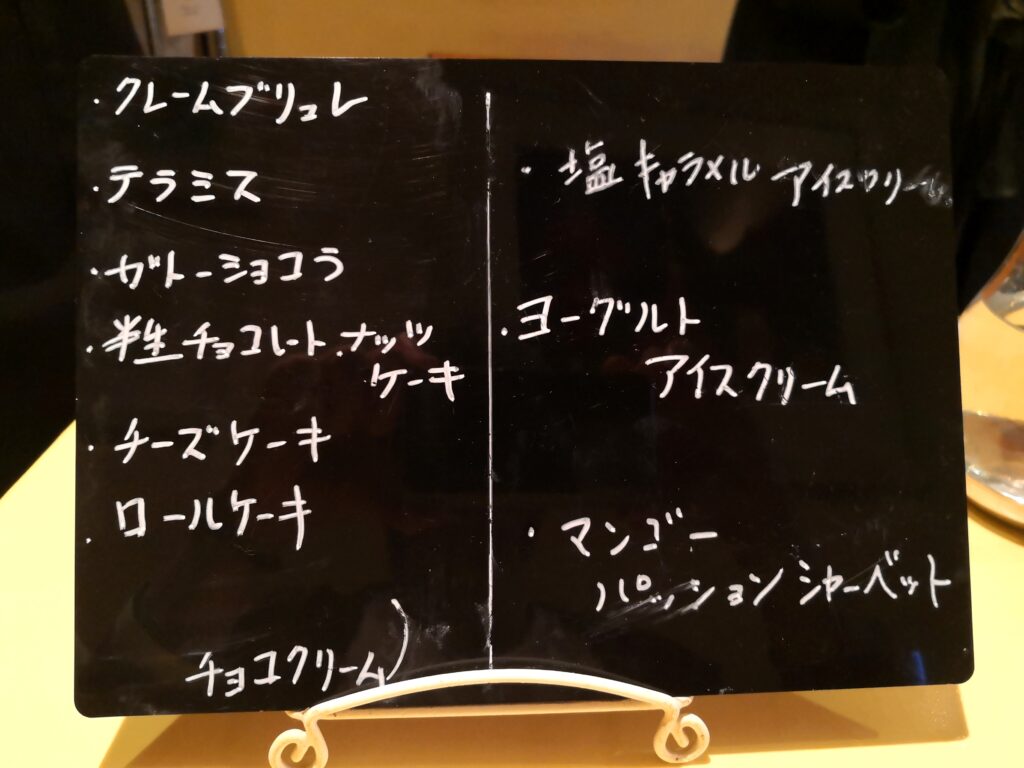 ・クレームブリュレ
・テラミス
・ガトーショコラ
・半生チョコレート.ナッツ
ケーキ
・チーズケーキ
・ロールケーキ
チョコクリーム)
・塩キャラメル アイスクリーム
・ヨーグルト
アイスクリーム
・マンゴー
パッション シャーベット